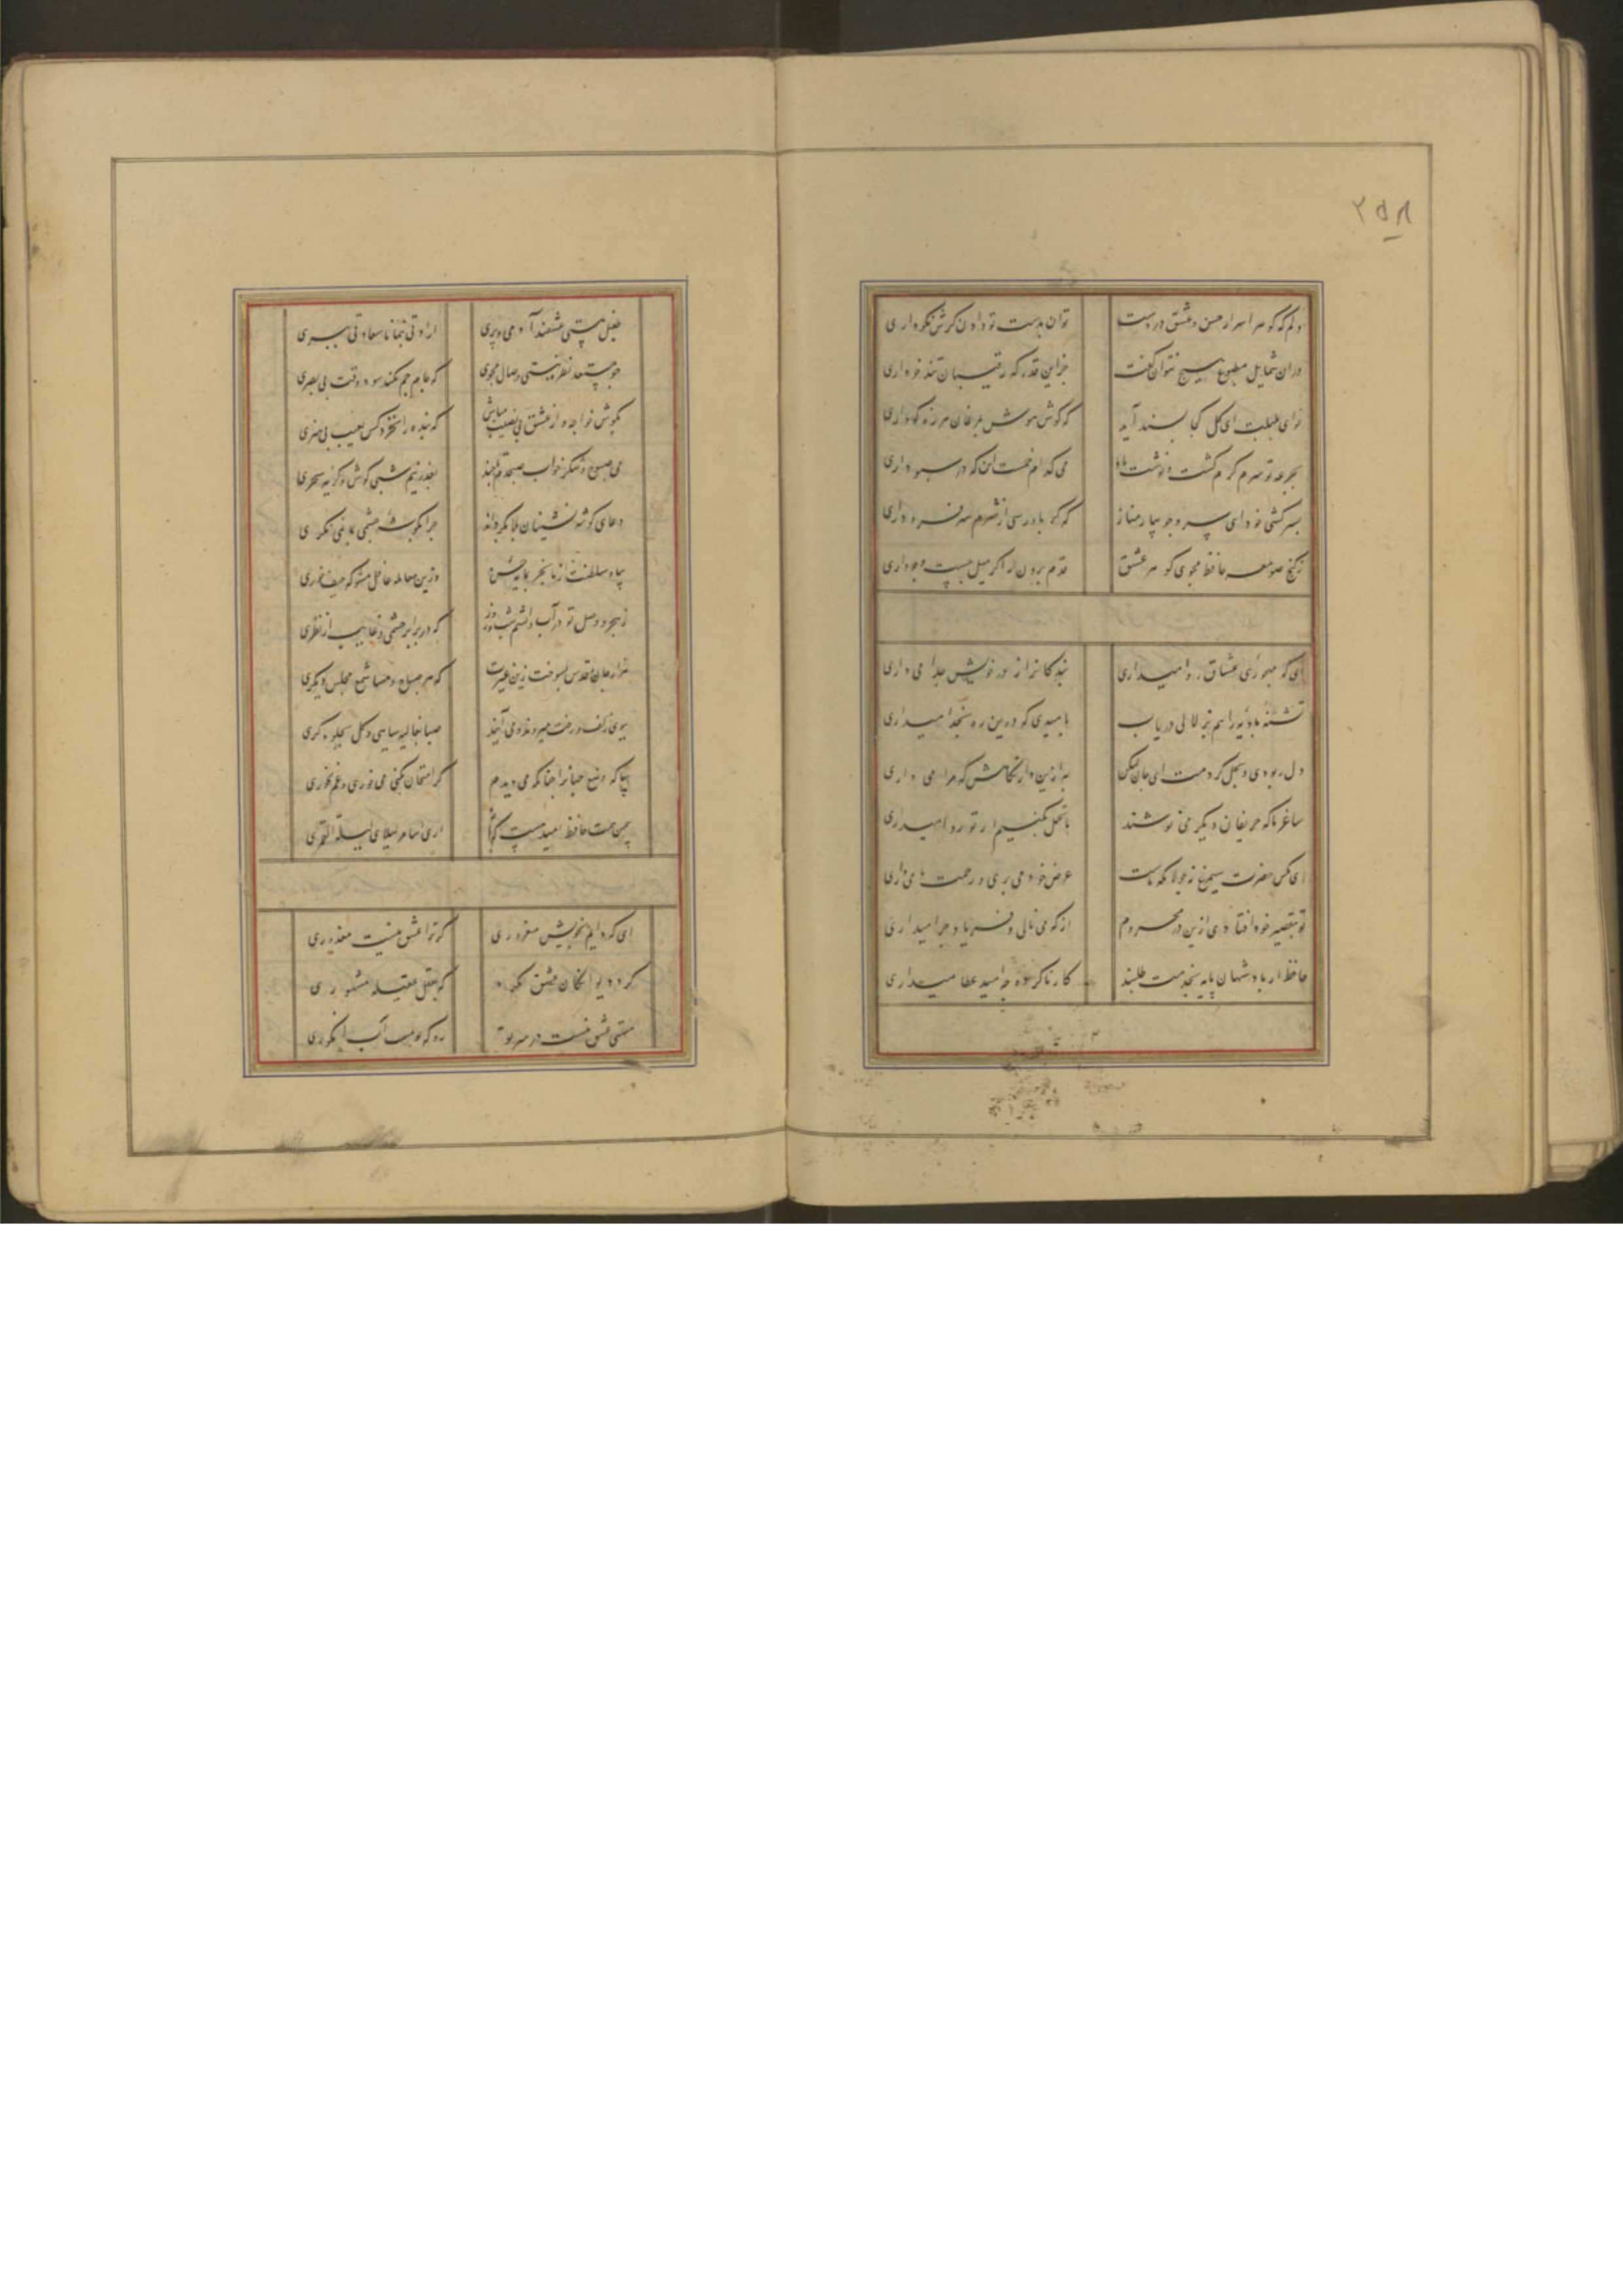 ۲۵۸
دلم که گوهر اسرار حسن و عشق دروست
توان بدست تو دادن گرش نکو داری
دران شمایل مطبوع هیچ نتوان گفت
جز این قدر که رقیبان تندخو داری
نوای بلبلت ای گل کجا پسند آید
که گوش هوش بمرغان هرزه گو داری
بجرعه تو سرم گرم گشت نوشت باد
می که ام خمست این که در سبو داری
بسرکشی خود ای سرو جویبار مناز
که گر باو رسی از شرم سر فرو داری
ز کنج صومعه حافظ مجوی گوهر عشق
قدم برون نه اگر میل جست و جو داری
ای که مهجوری عشاق روا میداری
بندگانرا ز بر خویش جدا می داری
تشنه بادیه را هم بزلالی دریاب
بامیدی که درین ره بخدا میداری
دل ربودی و بحل کردمت ای جان لیکن
به ازین دار نگاهش که مرا می داری
ساغر ما که حریفان دگر می نوشند
ما تحمل نکنیم ار تو روا میداری
ای مگس حضرت سیمرغ نه جولانگه تست
عرض خود می بری و زحمت ما می داری
تو بتقصیر خود افتادی ازین در محروم
از که می نالی و فریاد چرا میداری
حافظ از پادشهان پایه بخدمت طلبند
کار ناکرده چه امید عطا میداری
طفیل هستی عشقند آدمی و پری
ارادتی بنما تا سعادتی ببری
چو مستعد نظر نیستی وصال مجوی
که جام جم نکند سود وقت بی بصری
بکوش خواجه و از عشق بی نصیب مباش
که بنده را نخرد کس بعیب بی هنری
می صبوح و شکر خواب صبحدم تا چند
بعذر نیم شبی کوش و گریه سحری
دعای گوشه نشینان بلا بگرداند
چرا بگوشه چشمی بما نمی نگری
بیا و سلطنت از ما بخر بمایه حسن
وزین معامله غافل مشو که حیف خوری
ز هجر و وصل تو در آب و آتشم شب و روز
که در برابر چشمی و غایب از نظری
هزار جان مقدس بسوخت زین غیرت
که هر صباح و مسا شمع مجلس دگری
ببوی زلف و رخت میروند و می آیند
صبا بغالیه سایی و گل بجلوه گری
بیا که وضع جهانرا چنانکه می دیدم
گر امتحان بکنی می خوری و غم نخوری
بیمن همت حافظ امید هست که باز
اری اسامر لیلای لیلة القمری
ای که دایم بخویش مغروری
گر ترا عشق نیست معذوری
گرد دیوانگان عشق مگرد
که بعقل عقیله مشهوری
مستی عشق نیست در سر تو
رو که تو مست آب انگوری